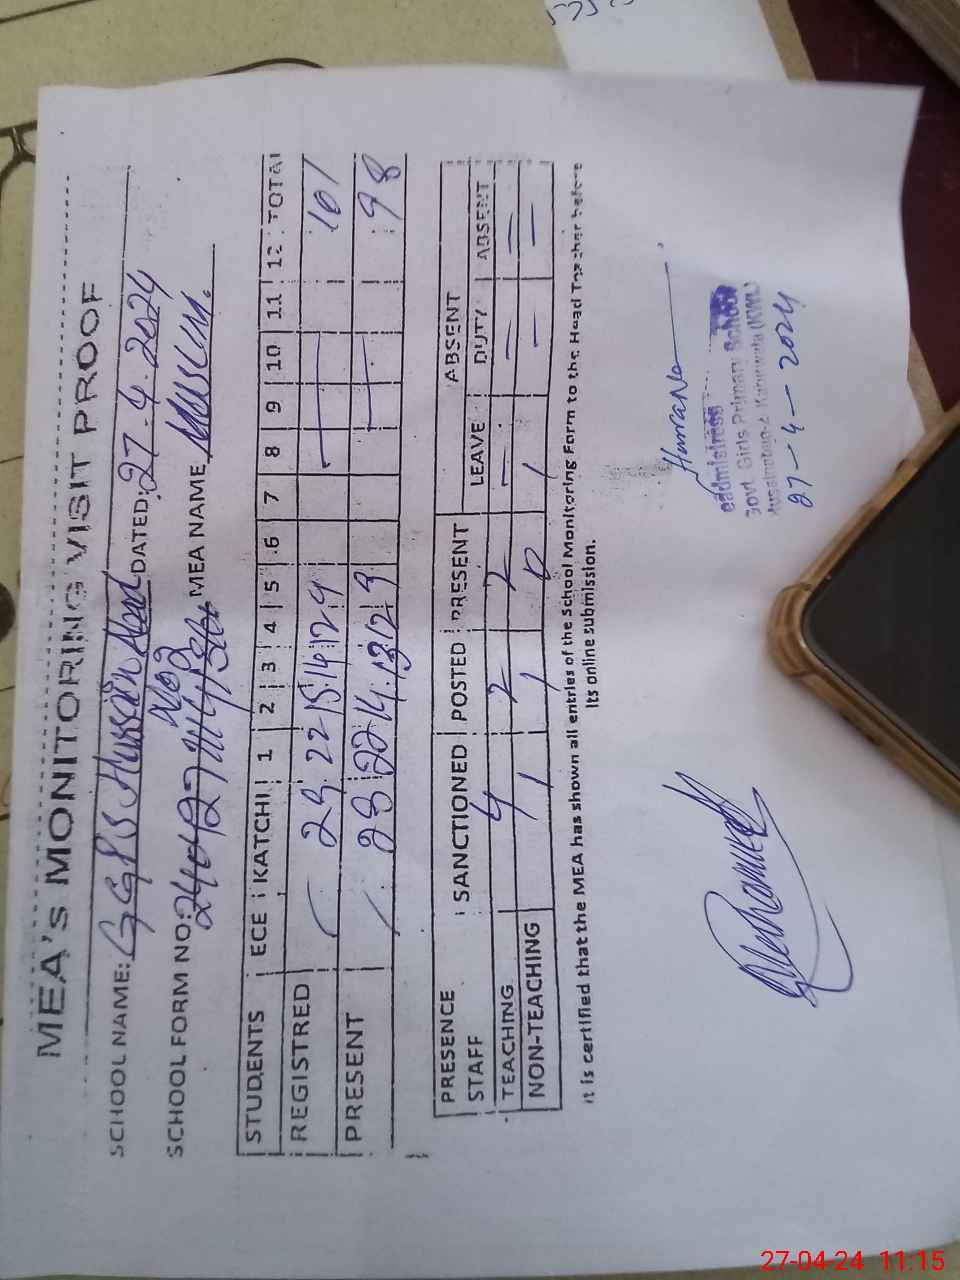 MEA's MONITORING VISIT PROOF
SCHOOL NAME: GGPS Hussain Abad DATED: 27-4-2024
SCHOOL FORM NO: MEA NAME
STUDENTS ECE KATCHI 1 2 3 4 5 6 7 8 9 10 11 12 TOTAL
REGISTRED 29 22 15 14 12 9 101
PRESENT 28 22 14 13 12 9 98
PRESENCE STAFF SANCTIONED POSTED PRESENT ABSENT
LEAVE DUTY ABSENT
TEACHING 4 2 2 — = =
NON-TEACHING 1 1 0 1 — =
It is certified that the MEA has shown all entries of the School Monitoring Form to the Head Teacher before
its online submission.
eadmistress
Govt. Girls Primary School
27-4-2024
27-04-24 11:15